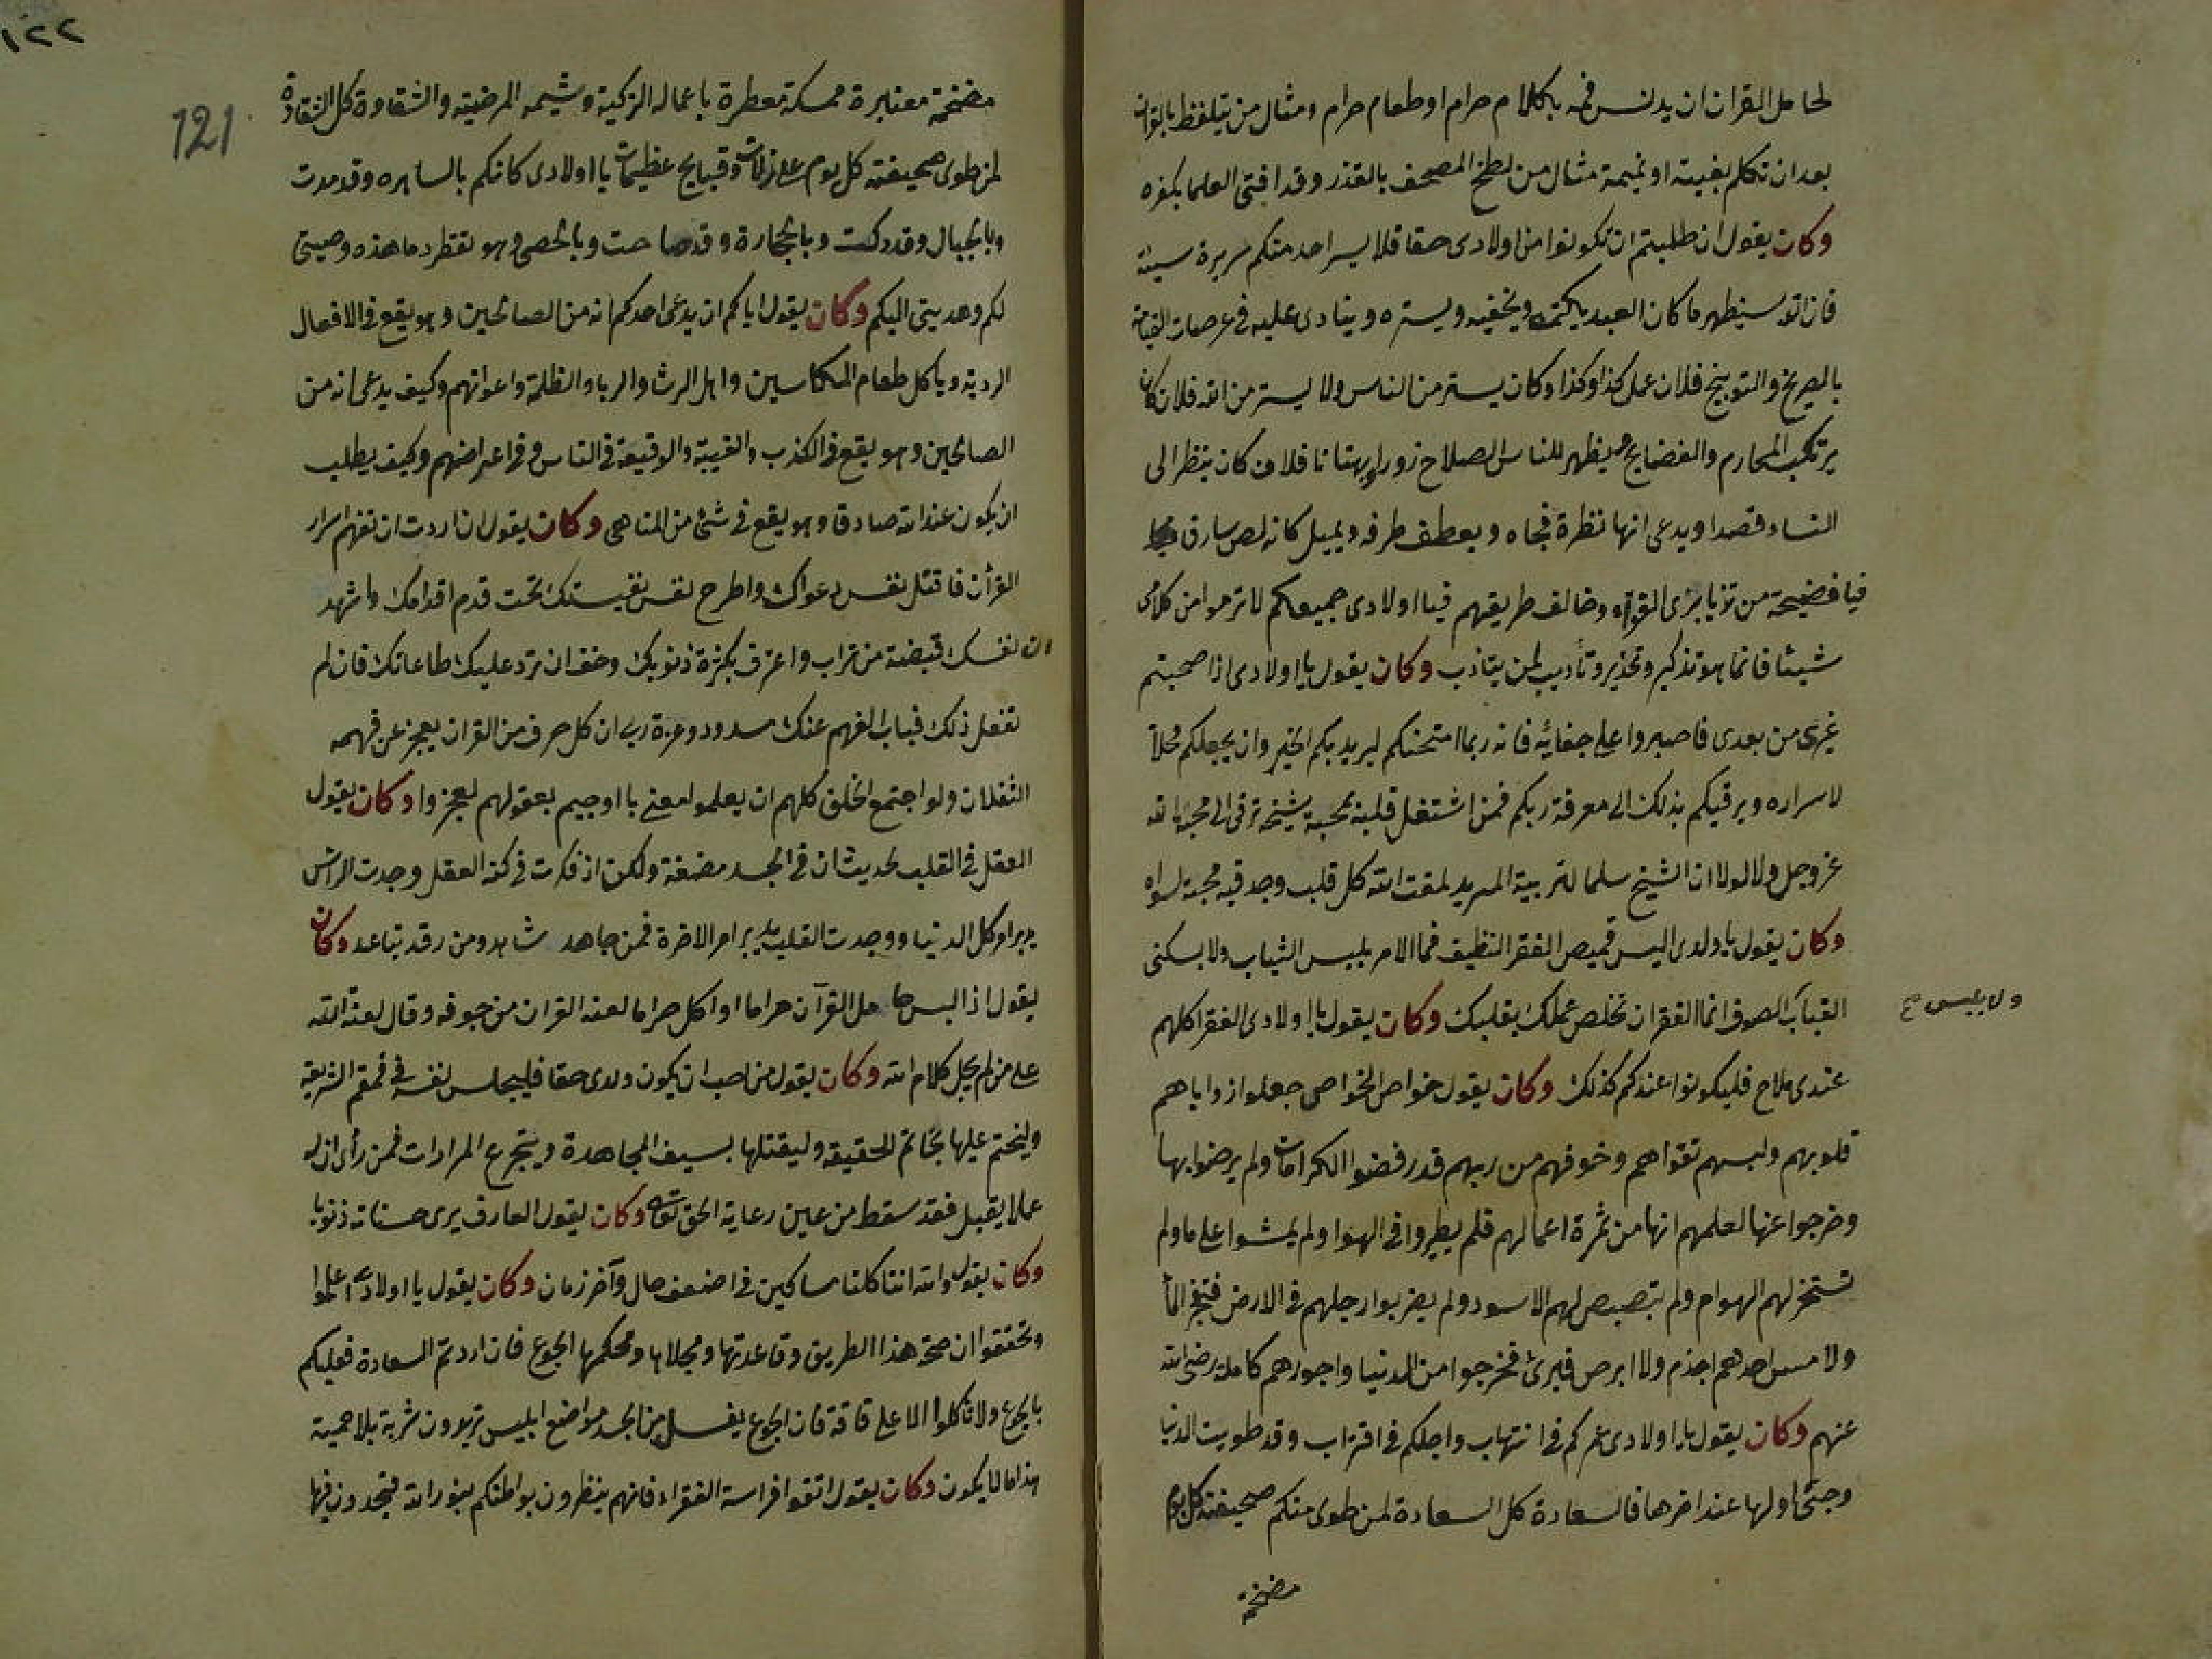 لحامل القران ان يدنس فمه بكلام حرام او طعام حرام ومثال من يتلفظ بالقران
بعد ان تكلم بغيبة او نميمة مثال من لطخ المصحف بالقذر وقد افتى العلما بكفره
وكان يقول ان طلبتم ان تكونوا من اولادى حقا فلا يسر احد منكم سريرة سيئة
فان الله سيظهر ما كان العبد يكتمه ويخفيه ويستره وينادى عليه فى عرصات القيامة
بالصريخ والتوبيخ فلان عمل كذا وكذا وكان يستتر من الناس ولا يستتر من الله فلان كان
يرتكب المحارم والفضايح ويظهر للناس الصلاح زورا وبهتانا فلان كان ينظر الى
النساء قصدا ويدعى انها نظرة فجاه ويعطف طرفه ويميل كانه لص سارق
فيا فضيحة من تزيا بزى الفقراء وخالف طريقهم فيا اولادى جميعكم لا ترموا من كلامى
شيئا فانما هو تذكير وتحذير وتأديب لمن يتادب وكان يقول يا اولادى اذا صحبتم
غيرى من بعدى فاصبروا على جفائه فانه ربما امتحنكم ليريد بكم الخير وان يجعلكم محلا
لاسراره ويرقيكم بذلك الى معرفة ربكم فمن اشتغل قلبه بمحبة شيخه ترقى الى محبة الله
عز وجل ولا لولا ان الشيخ سلما لتربية المريد لمقت الله كل قلب وجد فيه محبة لسواه
وكان يقول يا ولدى البس قميص الفقر النظيف فما الامر بلبس الثياب ولا بسكنى
القباب الصوف انما الفقر ان تخلص عملك بقلبك وكان يقول يا اولادى الفقرا كلهم
ولا بلبس صح
عندى ملاح فليكونوا عندكم كذلك وكان يقول خواص الخواص جعلوا زواياهم
قلوبهم ولبسهم تقواهم وخوفهم من ربهم قد رفضوا الكرامات ولم يرضوا بها
وخرجوا عنها لعلمهم انها من ثمرة اعمالهم فلم يطيروا فى الهوا ولم يمشوا على ماء ولم
تسخر لهم الهوام ولم تبصبص لهم الاسود ولم يضربوا رجلهم فى الارض فتفجر الماء
ولا مس احدهم اجذم ولا ابرص فبرئ فخرجوا من الدنيا واجورهم كاملة رضى الله
عنهم وكان يقول يا اولادى عمركم فى انتهاب واجلكم فى اقتراب وقد طويت الدنيا
وجئ اولها عند اخرها فالسعادة كل السعادة لمن طوى منكم صحيفته كل يوم
مضمخة
١٢٢
121
مضمخة معنبرة ممسكة معطرة باعماله الزكية وشيمه المرضية والشقاوة كل الشقاوة
لمن طوى صحيفته كل يوم على زلات وقبايح عظيمات يا اولادى كانكم بالساهره وقد مدت
وبالجبال وقد دكت وبالحجارة وقد صاحت وبالحصى وهو تقطر دما هذه وصيتى
لكم وهديتى اليكم وكان يقول اياكم ان يدعى احدكم انه من الصالحين وهو يقع فى الافعال
الردية وياكل طعام المكاسين واهل الرشا والربا والظلمة واعوانهم وكيف يدعى انه من
الصالحين وهو يقع فى الكذب والغيبة والوقيعة فى الناس وفى اعراضهم وكيف يطلب
ان يكون عند الله صادقا وهو يقع فى شئ من المناهى وكان يقول ان اردت ان تفهم اسرار
القرأن فاقتل نفس دعواك واطرح نفس نفيستك تحت قدم اقدامك واشهد
ان نفسك قبضة من تراب واعترف بكثرة ذنوبك وخف ان ترد عليك طاعاتك فان لم
تفعل ذلك فباب الفهم عنك مسدود وعزة ربى ان كل حرف من القران يعجز عن فهمه
الثقلان ولو اجتمع الخلق كلهم ان يعلموا معنى با او جيم بعقولهم لعجزوا وكان يقول
العقل فى القلب لحديث ان فى الجسد مضغة ولكن اذ فكرت فى كنه العقل وجدت الراس
يدبر امر كل الدنيا ووجدت القلب يدبر امر الاخرة فمن جاهد شاهد ومن رقد تباعد وكان
يقول اذا لبس حامل القرآن حراما او اكل حراما لعنه القران من جوفه وقال لعنة الله
على من لم يجل كلام الله وكان يقول من احب ان يكون ولدى حقا فليحبس نفسه فى قمقم الشريعة
وليختم عليها بخاتم الحقيقة وليقتلها بسيف المجاهدة ويتجرع المرارات فمن رأى ان له
عملا يقبل فقد سقط من عين رعاية الحق تعالى وكان يقول العارف يرى حسناته ذنوبا
وكان يقول والله انتا كلنا مساكين فى اضعف حال وآخر زمان وكان يقول يا اولادى اعلموا
وتحققوا ان صحة هذا الطريق وقاعدتها ومجلاها ومحكمها الجوع فان اردتم السعادة فعليكم
بالجوع ولا تاكلوا الا على فاقة فان الجوع يغسل من الجسد مواضع ابليس تريدون شربة بلا حمية
هذا ما لا يكون وكان يقول اتقوا فراسة الفقراء فانهم ينظرون بواطنكم بنور الله فيجدون فيها